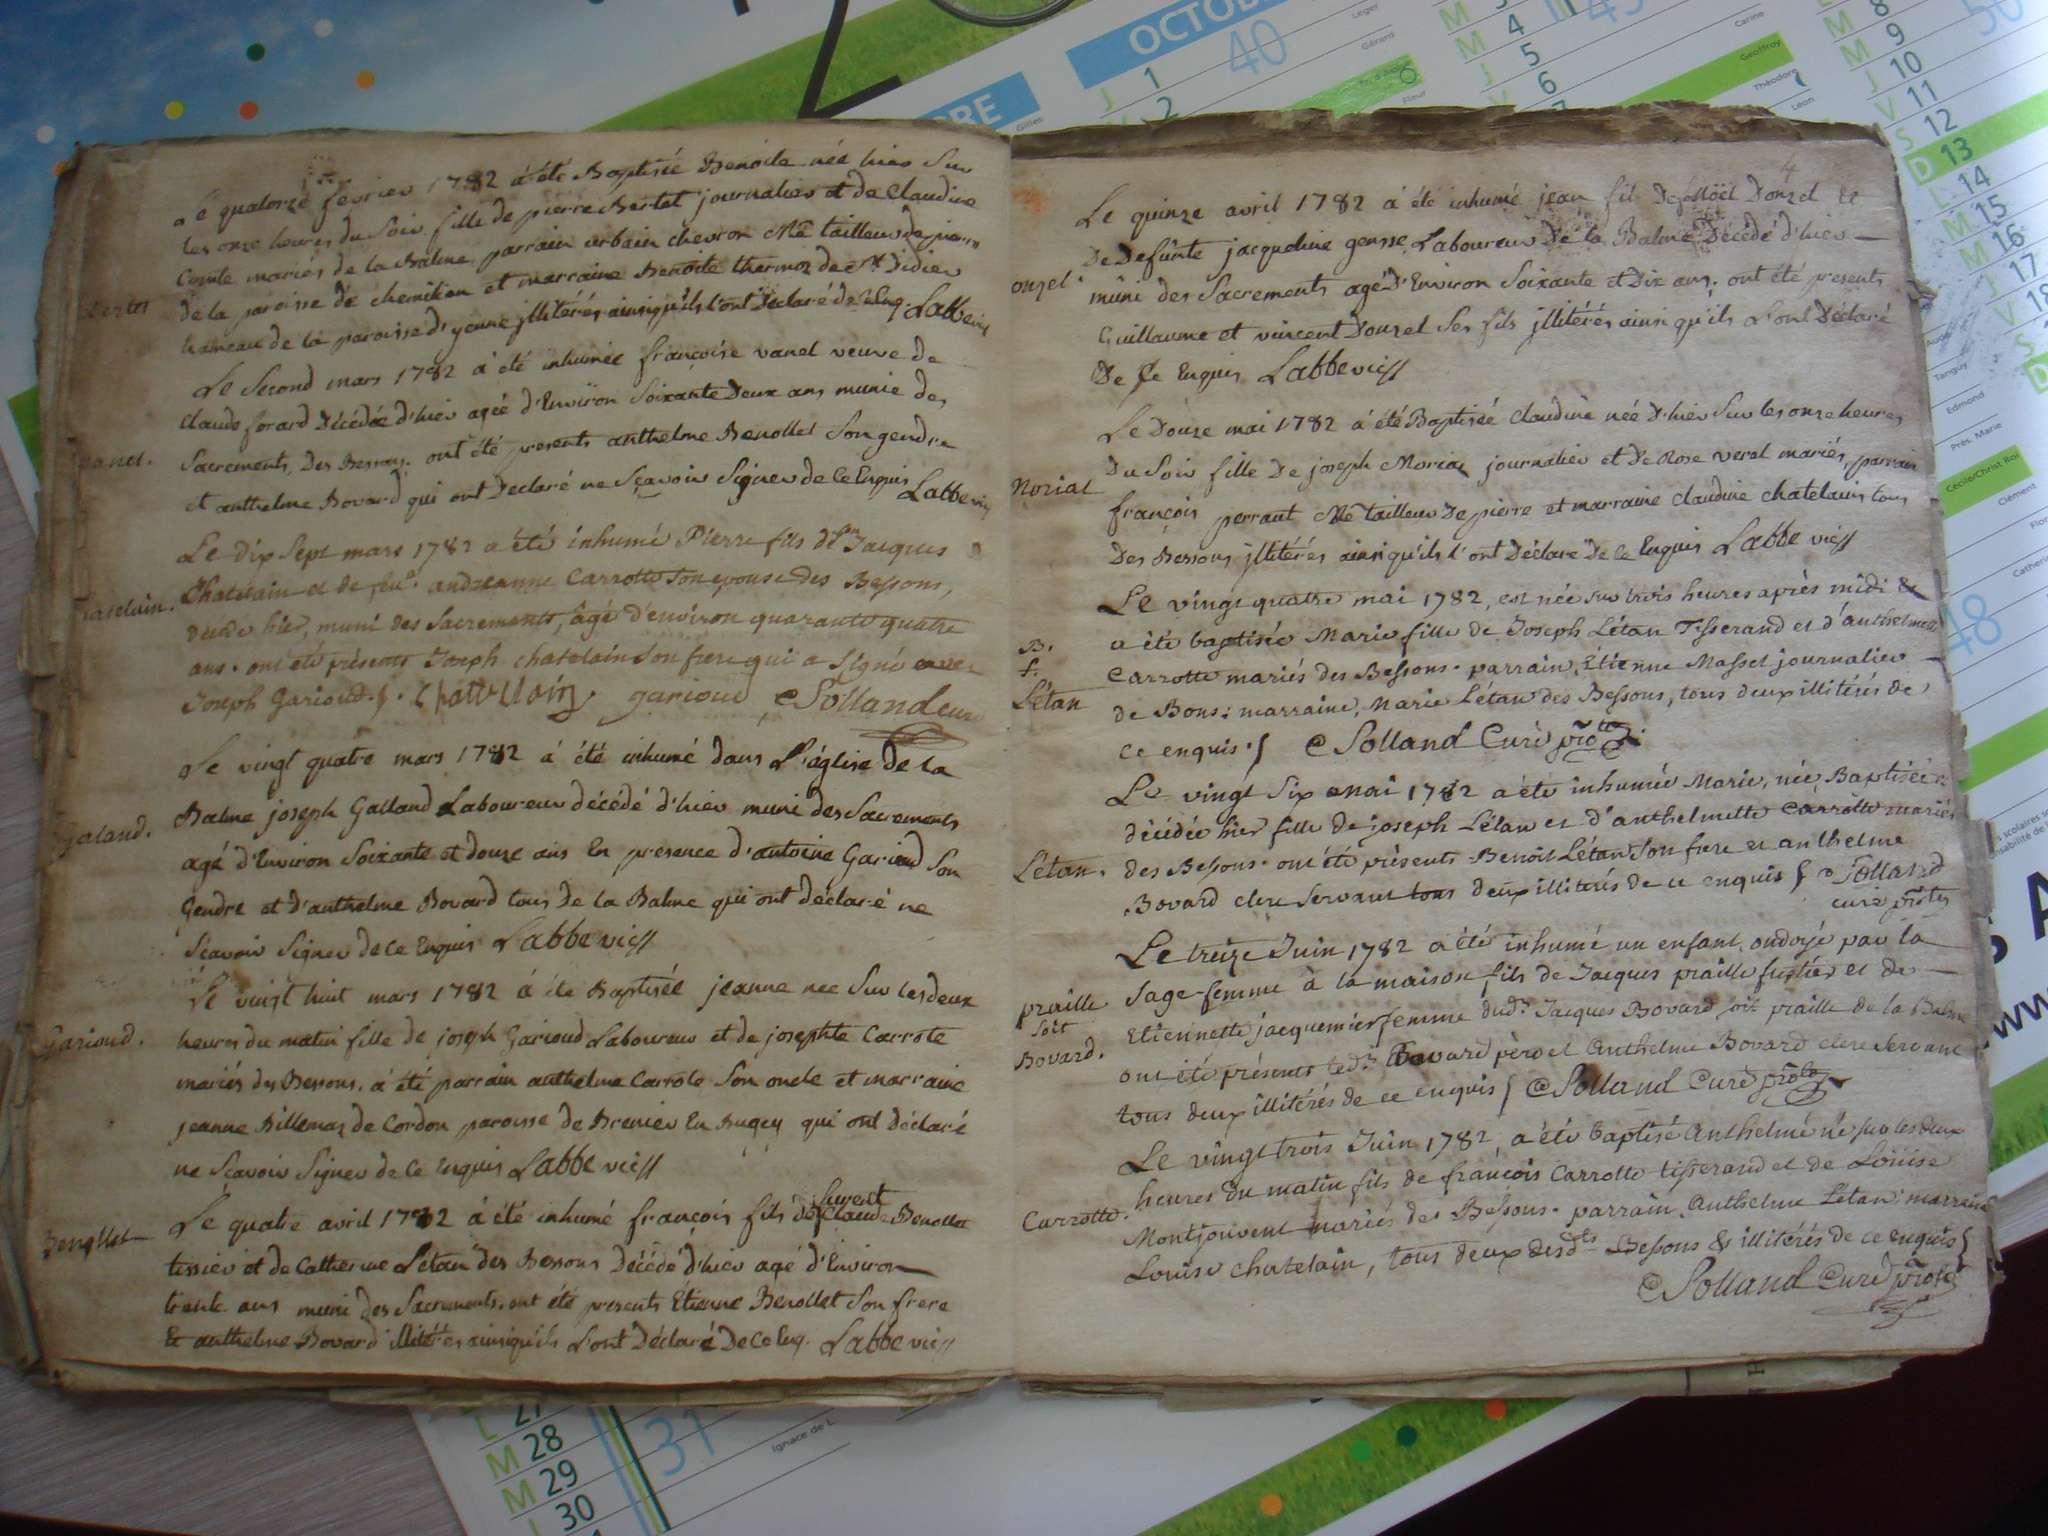 Le quatorze fevrier 1782 á été Baptisée Benoite née hier Sur
les onze heures du Soir fille de pierre Bertet journalier et de Claudine
Comte mariés de la Balme, parrain urbain chevron Me tailleur de pierre
de la paroisse de chemilieu et marraine Benoite thermoz de St Didier
hameau de la paroisse d'yenne jllitérés ainsiqu'ils l'ont Déclaré de Ce Enq. Labbe vic
Bertet
Le Second mars 1782 á été inhumée françoise vanel veuve de
Claude forard Décédée d'hier agée d'Environ Soixante Deux ans munie des
Sacrements, Des Bessons. ont été presents anthelme Benollet Son gendre
et anthelme Bovard qui ont Declaré ne Sçavoir Signer de Ce Enquis Labbe vic
vanel.
Le Dix Sept mars 1782 a été inhumé Pierre fils de fû Jacques
Chatelain et de feue. andreanne Carrotte Son epouse des Bessons,
décédé hier, muni des Sacrements, âgé d'environ quarante quatre
ans. ont été présents Joseph chatelain Son frere qui a Signé avec
Joseph Gariod. Chattellain gariod C Solland curé
chatelain.
Le vingt quatre mars 1782 á été inhumé dans L'église De la
Balme joseph Galland Laboureur décédé d'hier muni des Sacrements
agé d'Environ Soixante et douze ans En presence d'antoine Gariod Son
Gendre et d'anthelme Bovard tous de la Balme qui ont déclaré ne
Sçavoir Signer de Ce Enquis Labbe vic
Galand.
Le vingt huit mars 1782 á été Baptisée jeanne née Sur les deux
heures du matin fille de joseph Gariod Laboureur et de josephte Carrote
mariés des Bessons. á été parrain anthelme Carrote Son oncle et marraine
jeanne Billemaz de Cordon paroisse de Brenier En Bugey qui ont déclaré
ne Sçavoir Signer de Ce Enquis Labbe vic
Gariod.
Le quatre avril 1782 á été inhumé françois fils de Claude Benollet
tissier et de Catherine Létan des Bessons Décédé d'hier agé d'Environ
trente ans muni des Sacrements. ont été presents Etienne Benollet Son frere
Et anthelme Bovard illitérés ainsiqu'ils L'ont Déclaré De Ce Enq. Labbe vic
Benollet
4
Le quinze avril 1782 á été inhumé jean fils De Noël Donzel et
De Defunte jacqueline gousse Laboureur De la Balme Décédé d'hier
muni des Sacrements agé D'Environ Soixante et Dix ans. ont été presents
Guillaume et vincent Donzel Ses fils jllitérés ainsi qu'ils L'ont Déclaré
De Ce Enquis Labbe vic
onzel
Le Douze mai 1782 á été Baptisée Claudine née D'hier Sur les onze heures
Du Soir fille De joseph Moriat journalier et De Rose veral mariés, parrain
françois perraut Me tailleur De pierre et marraine claudine chatelain tous
Des Bessons jllitérés ainsi qu'ils l'ont Déclaré De Ce Enquis Labbe vic
Moriat
Le vingt quatre mai 1782, est née sur trois heures après midi &
a été baptisée Marie fille de Joseph Létan Tisserand et d'anthelmette
Carrotte mariés des Bessons. parrain, Etienne Masset journalier
de Bons; marraine, Marie Létan des Bessons, tous deux illitérés de
ce enquis. C Solland Curé
B.
f.
Létan
Le vingt Six mai 1782 a été inhumée Marie, née, Baptisée &
décédée hier fille de joseph Létan et d'anthelmette Carrotte mariés
des Bessons. ont été présents Benoit Létan Son frere et anthelme
Bovard clerc Servant tous deux illiterés de ce enquis C Solland
curé
Létan.
Le treize Juin 1782 a été inhumé un enfant ondoyé par la
Sage-femme à la maison, fils de Jacques praille fustier et de
Etiennette jacquemier femme dud. Jacques Bovard soit praille de la Balme
ont été présents led. Bovard père et Anthelme Bovard clerc Servant
tous deux illitérés de ce enquis C Solland Curé
praille
Soit
Bovard.
Le vingt trois Juin 1782, a été baptisé Anthelme né sur les deux
heures du matin fils de françois Carrotte tisserand et de Loüise
Montjouvent mariés des Bessons. parrain Anthelme Létan; marraine
Louise chatelain, tous deux desdts Bessons & illitérés de ce enquis
C Solland Curé
Carrotte.
OCTOB
40
1
2
4
5
6
Léger
Gérard
Carine
Geoffroy
Théodore
Léon
8
9
10
11
12
D 13
14
15
16
17
18
Tanguy
Edmond
Prés. Marie
Cécile/Christ Roi
Clément
48
L 27
M 28
M 29
30
31
Ignace de L